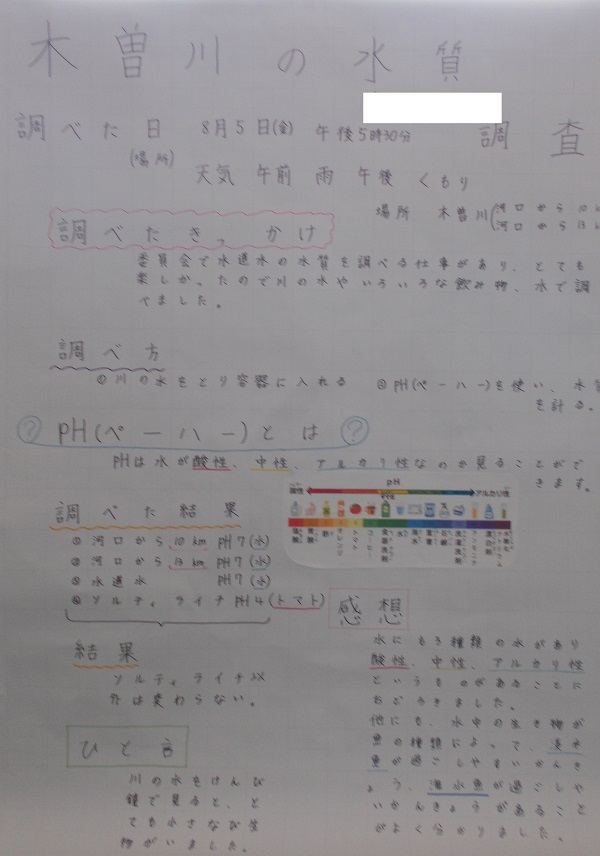 木曽川の水質
調査
調べた日 8月5日(金) 午後5時30分
(場所)
天気 午前 雨 午後 くもり
場所 木曽川(河口から10k
河口から13k
調べたきっかけ
委員会で水道水の水質を調べる仕事があり、とても
楽しかったので川の水やいろいろな飲み物、水で調
べました。
調べ方
①川の水をとり容器に入れる ②pH(ペーハー)を使い、水質
を計る。
? pH(ペーハー)とは ?
pHは水が酸性、中性、アルカリ性なのか見ることがで
きます。
pH
酸性 アルカリ性
調べた結果
①河口から10km pH7(水)
②河口から13km pH7(水)
③水道水 pH7(水)
④ソルティライチpH4(トマト)
結果
ソルティライチ以
外は変わらない。
ひと言
川の水をけんび
鏡で見ると、と
ても小さなび生
物がいました。
感想
水にもう種類の水があり
酸性、中性、アルカリ性
というものがあることに
おどろきました。
他にも、水中の生き物が
魚の種類によって、淡水
魚が過ごしやすいかんき
ょう、海水魚が過ごしや
いかんきょうがあること
がよく分かりました。